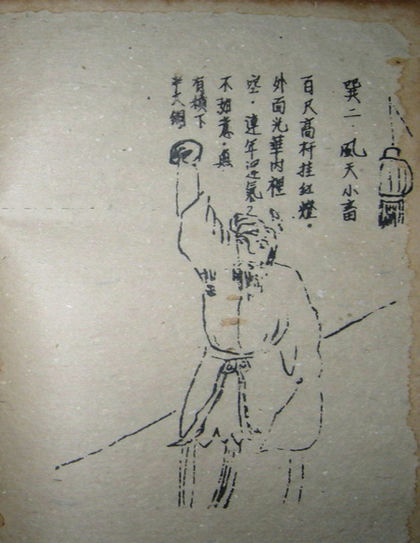 巽二 風天小畜
百尺高杆挂紅燈。
外面光華内裡
空。連年
不 意。魚
有積下
半天網